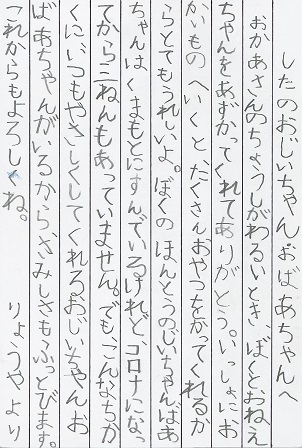 したのおじいちゃん、おばあちゃんへ
おかあさんのちょうしがわるいとき、ぼくと、おねえ
ちゃんをあずかってくれてありがとう。いっしょにお
かいものへいくと、たくさんおやつをかってくれるか
らとてもうれしいよ。ぼくのほんとうのじいちゃんばあ
ちゃんはくまもとにすんでいるけれど、コロナになっ
てから二ねんもあっていません。でも、こんなちか
くにいつもやさしくしてくれるおじいちゃん、お
ばあちゃんがいるから、さみしさもふっとびます。
これからもよろしくね。
りょうやより